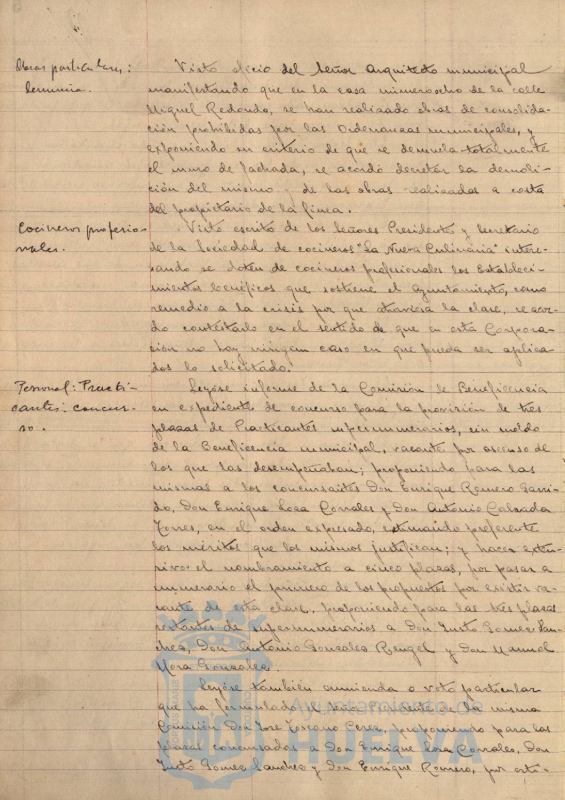 Obras particulares:
denuncia.
Visto oficio del Señor Arquitecto municipal
manifestando que en la casa número ocho de la calle
Miguel Redondo, se han realizado obras de consolida-
ción prohibidas por las Ordenanzas municipales, y
exponiendo su criterio de que se demuela totalmente
el muro de fachada, se acordó decretar la demoli-
ción del mismo y de las obras realizadas a costa
del propietario de la finca.
Cocineros profesio-
nales.
Visto escrito de los señores Presidente y Secretario
de la Sociedad de cocineros "La Nueva Culinaria" intere-
sando se doten de cocineros profesionales los Estableci-
mientos benéficos que sostiene el Ayuntamiento, como
remedio a la crisis por que atraviesa la clase, se acor-
dó contestarlo en el sentido de que en esta Corpora-
ción no hay ningún caso en que pueda ser aplica-
do lo solicitado.
Personal: Practi-
cantes: concur-
so.
Leyóse informe de la Comisión de Beneficencia
en expediente de concurso para la provisión de tres
plazas de Practicantes supernumerarios, sin sueldo
de la Beneficencia municipal, vacante por ascenso de
los que las desempeñaban; proponiendo para las
mismas a los concursantes Don Enrique Romero Garri-
do, Don Enrique Lora Corrales y Don Antonio Calzada
Torres, en el orden expresado, estimando preferente
los méritos que los mismos justifican; y hacer exten-
sivo el nombramiento a cinco plazas, por pasar a
numerario el primero de los propuestos por existir va-
cante de esta clase, proponiendo para las tres plazas
restantes de supernumerarios a Don Justo Gomez San-
chez, Don Antonio Gonzalez Rengel y Don Manuel
Mora Gonzalez.
Leyóse también enmienda o voto particular
que ha formulado el de la misma
Comisión Don José Toscano Perez, proponiendo para las
plazas concursadas a Don Enrique Lora Corrales, Don
Justo Gomez Sanchez y Don Enrique Romero, por esti-
Ayuntamiento de
HUELVA